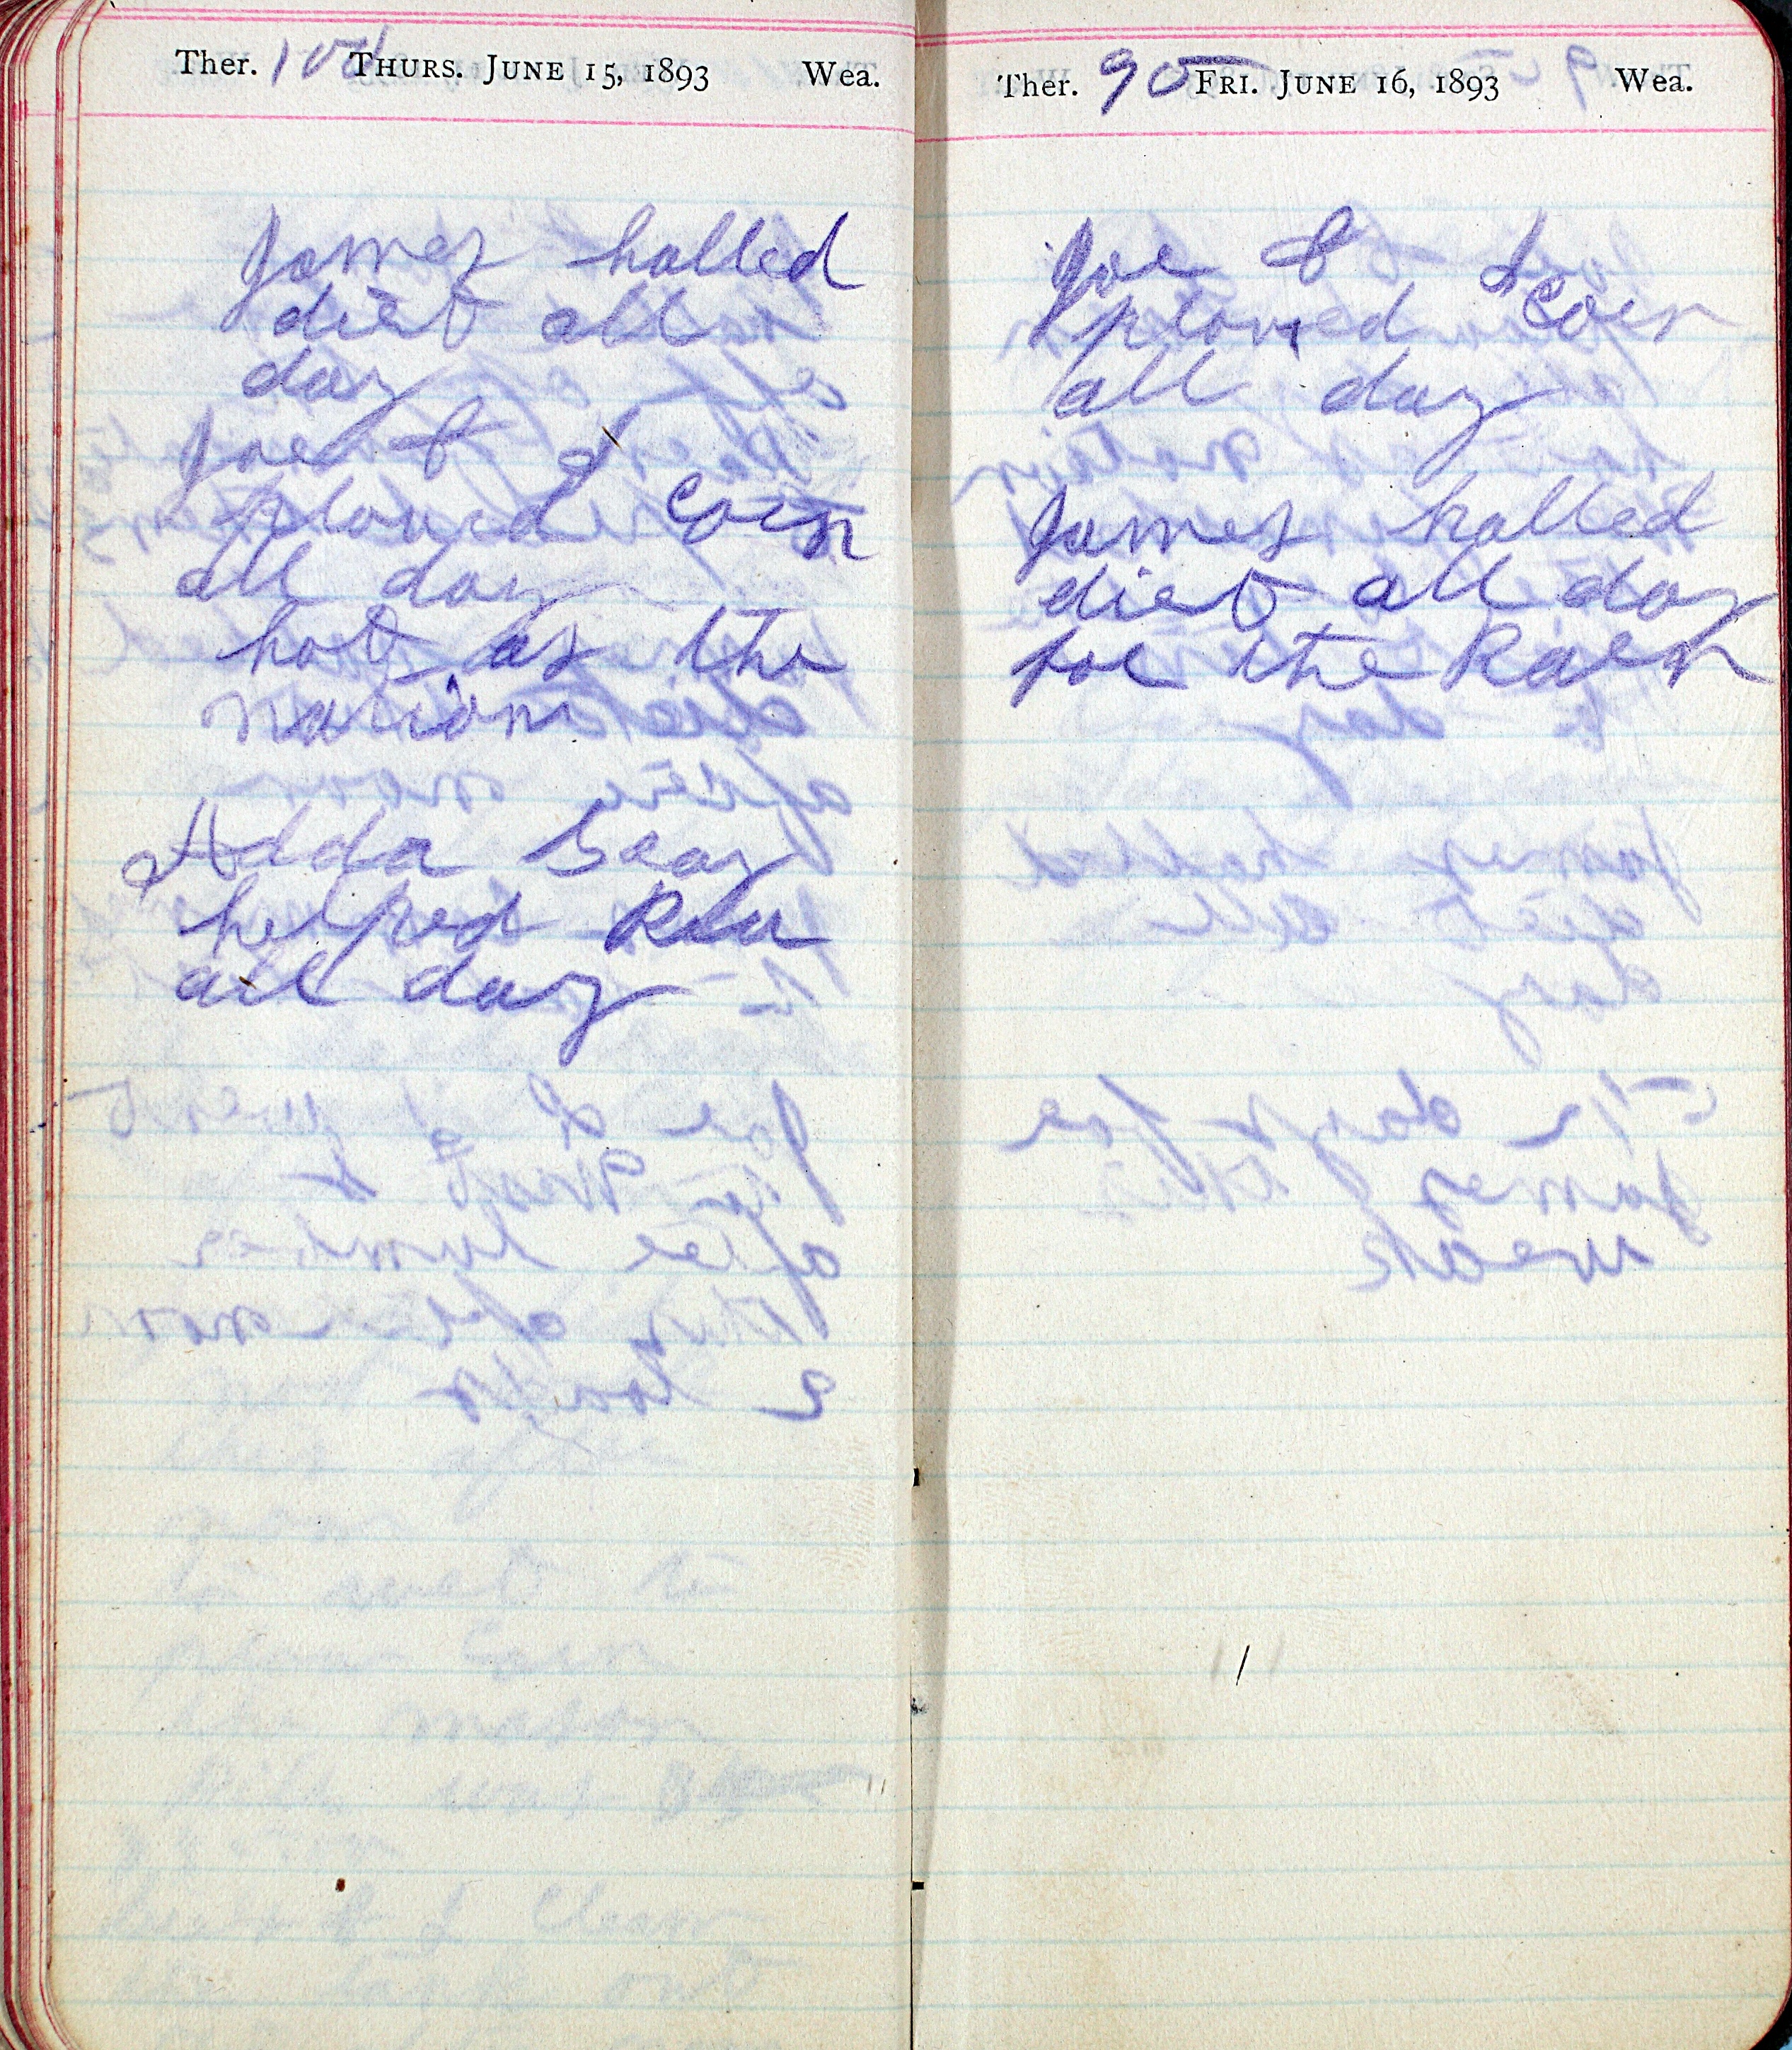 Ther. 100 THURS. JUNE 15, 1893 Wea.
James halled
diet all
day
Joe & I
ploued Corn
all day
hot as the
nacion
Adda Gear
helped Rilla
all day
Ther. 90 FRI. JUNE 16, 1893 Wea.
Joe & I
plowed Corn
all day
James halled
diet all day
for the Raen